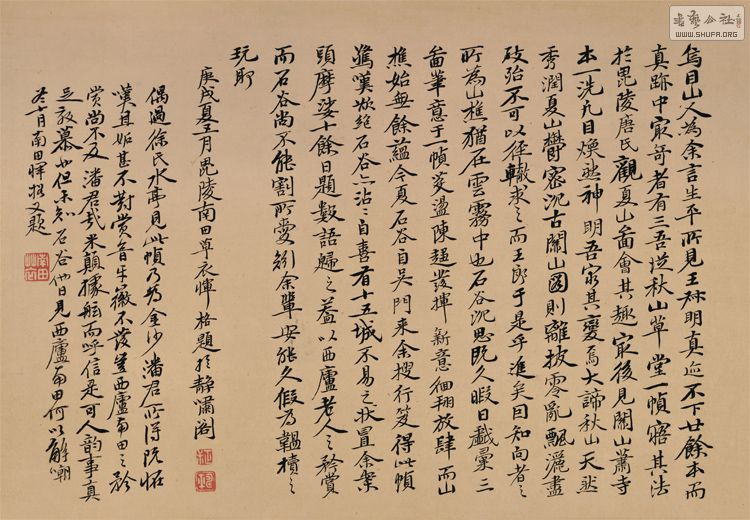 烏目山人為余言生平所見王叔明真迹不下廿餘本而
真跡中最奇者有三吾從秋山草堂一幀悟其法
於毘陵唐氏觀夏山啚會其趣最後見關山蕭寺
本一洗凡目煥然神明吾窮其變焉大諦秋山天然
秀潤夏山鬱密沉古關山圖則離披零亂飄灑盡
致殆不可以徑轍求之而王郎于是乎進矣因知向者之
所為山樵猶在雲霧中也石谷沉思既久暇日戲彙三
啚筆意于一幀滌盪陳趨發揮新意徊翔放肆而山
樵始無餘蘊今夏石谷自吳門來余搜行笈得此幀
驚嘆欲絕石谷亦沾沾自喜有十五城不易之狀置余案
頭摩娑十餘日題數語歸之蓋以西廬老人之矜賞
而石谷尚不能割所愛矧余輩安能久假為韞櫝之
玩耶
庚戌夏五月毘陵南田草衣惲格題於靜嘯閣
偶過徐氏水亭見此幀乃為金沙潘君所得既怪
嘆且妬甚不對賞音牙徽不發豈西廬南田之矜
賞尚不及潘君哉米顛據舷而呼信是可人韵事真
足效慕也但未知石谷他日見西廬南田何以解嘲
冬十月南田惲格又題
書藝公社
WWW.SHUFA.ORG